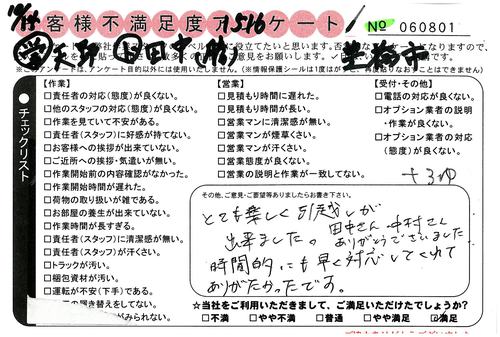 お客様不満足度アンケート
1516
No 060801
豊橋市
※このアンケートは、アンケート目的以外には使用いたしません。(※情報保護シールは1度はがすと、再度貼りなおすことはできません)
チェックリスト
【作業】
□責任者の対応(態度)が良くない。
□他のスタッフの対応(態度)が良くない。
□作業を見ていて不安がある。
□責任者(スタッフ)に好感が持てない。
□お客様への挨拶が出来ていない。
□ご近所への挨拶・気遣いが無い。
□作業開始前の内容確認がなかった。
□作業開始時間が遅れた。
□荷物の取り扱いが雑である。
□お部屋の養生が出来ていない。
□作業時間が長すぎる。
□責任者(スタッフ)に清潔感が無い。
□責任者(スタッフ)が汗くさい。
□トラックが汚い。
□梱包資材が汚い。
□運転が不安(下手)である。
の置き替えをしてない。
がみられない。
【営業】
□見積もり時間に遅れた。
□見積もり時間が長い。
□営業マンに清潔感が無い。
□営業マンが煙草くさい。
□営業マンが汗くさい。
□営業態度が良くない。
□営業の説明と作業が一致してない。
【受付・その他】
□電話の対応が良くない。
□オプション業者の説明
・作業が良くない。
□オプション業者の対応
(態度)が良くない。
その他、ご意見・ご要望等ありましたらお書き下さい。
とても楽しく引越しが
出来ました。田中さん 中村さん
ありがとうございました
時間的にも早く対応してくれて
ありがたかったです。
☆当社をご利用いただきまして、ご満足いただけたでしょうか?
□不満 □やや不満 □普通 □やや満足 ☑満足